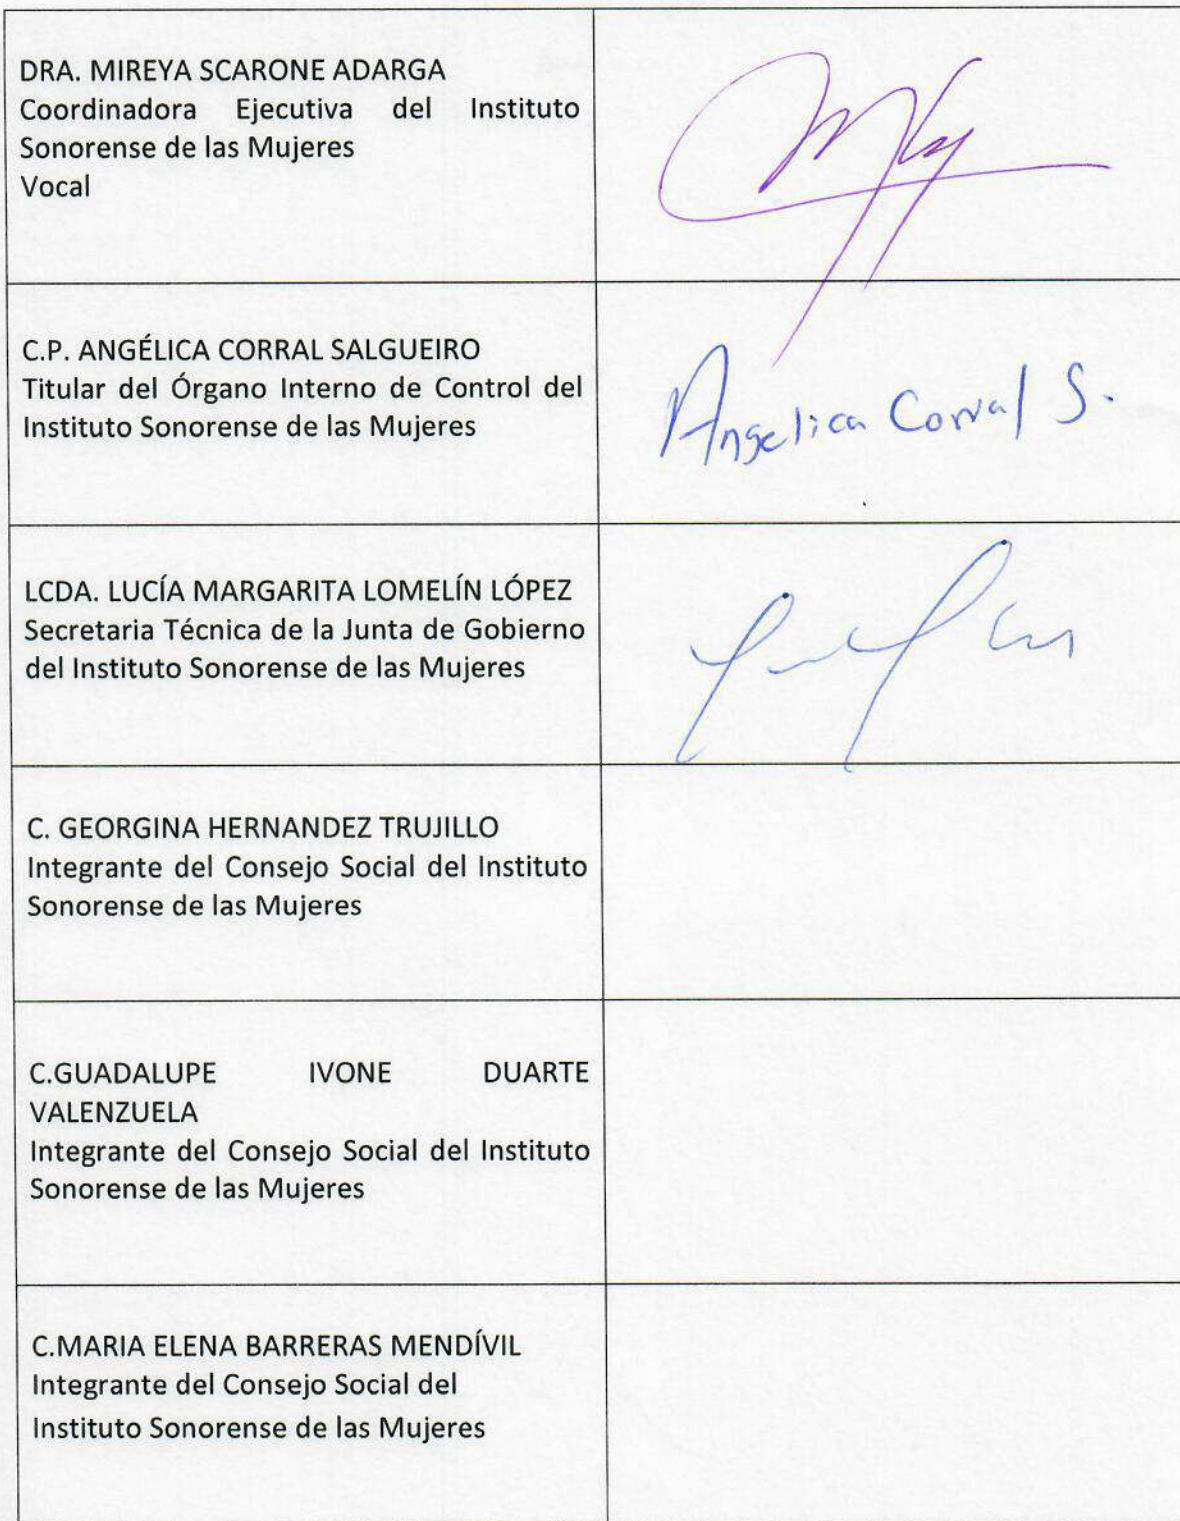 DRA. MIREYA SCARONE ADARGA
Coordinadora Ejecutiva del Instituto
Sonorense de las Mujeres
Vocal
C.P. ANGÉLICA CORRAL SALGUEIRO
Titular del Órgano Interno de Control del
Instituto Sonorense de las Mujeres
Angelica Corral S.
LCDA. LUCÍA MARGARITA LOMELÍN LÓPEZ
Secretaria Técnica de la Junta de Gobierno
del Instituto Sonorense de las Mujeres
C. GEORGINA HERNANDEZ TRUJILLO
Integrante del Consejo Social del Instituto
Sonorense de las Mujeres
C.GUADALUPE IVONE DUARTE
VALENZUELA
Integrante del Consejo Social del Instituto
Sonorense de las Mujeres
C.MARIA ELENA BARRERAS MENDÍVIL
Integrante del Consejo Social del
Instituto Sonorense de las Mujeres